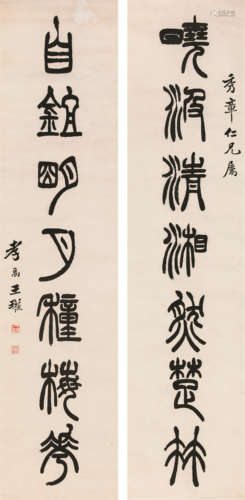 秀章仁兄屬
曉汲清湘然楚竹
自鉏明月種梅華
孝禹王瓘